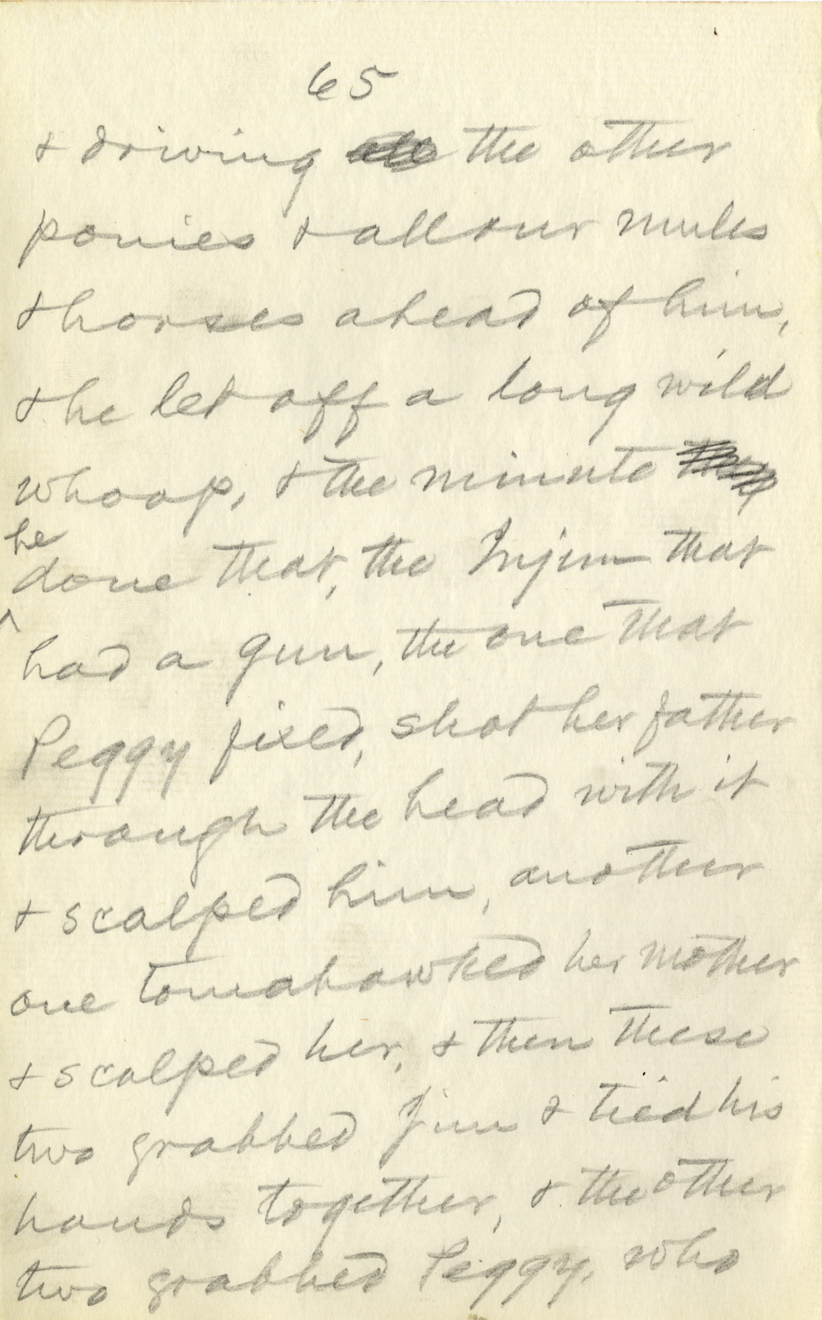 65
& driving the other
ponies & all our mules
& horses ahead of him,
& he let off a long wild
whoop, & the minute
he
done that, the Injun that
had a gun, the one that
Peggy fixed, shot her father
through the head with it
& scalped him, another
one tomahawked her mother
& scalped her, & then these
two grabbed Jim & tied his
hands together, & the other
two grabbed Peggy, who